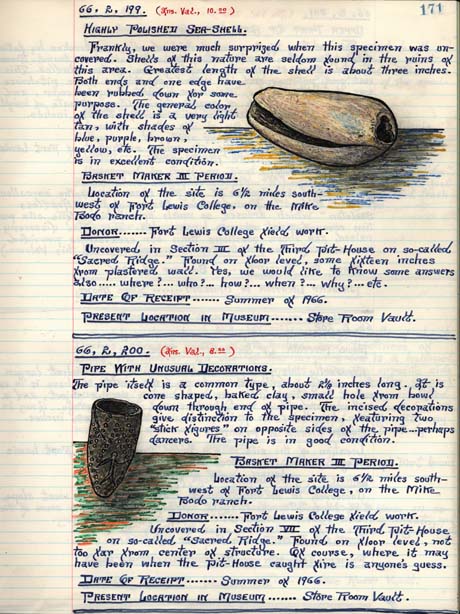 66, 2, 199. (Ins. Val., 10.00) 171
Highly Polished Sea-Shell.
Frankly, we were much surprized when this specimen was un-
covered. Shells of this nature are seldom found in the ruins of
this area. Greatest length of the shell is about three inches.
Both ends and one edge have
been rubbed down for some
purpose. The general color
of the shell is a very light
tan, with shades of
blue, purple, brown,
yellow, etc. The specimen
is in excellent condition.
Basket Maker III Period.
Location of the site is 6½ miles south-
west of Fort Lewis College, on the Mike
Bodo ranch.
Donor...... Fort Lewis College field work.
Uncovered in Section III of the Third Pit-House on so-called
"Sacred Ridge." Found on floor level, some fifteen inches
from plastered wall. Yes, we would like to know some answers
also..... where?... who?... how?... when?... why?... etc.
Date Of Receipt....... Summer of 1966.
Present Location in Museum....... Store Room Vault.
66, 2, 200. (Ins. Val., 8.00)
Pipe With Unusual Decorations.
The pipe itself is a common type, about 2⅛ inches long. It is
cone shaped, baked clay, small hole from bowl
down through end of pipe. The incised decorations
give distinction to the specimen, featuring two
"stick figures" on opposite sides of the pipe...perhaps
dancers. The pipe is in good condition.
Basket Maker III Period.
Location of the site is 6½ miles south-
west of Fort Lewis College, on the Mike
Bodo ranch.
Donor....... Fort Lewis College field work.
Uncovered in Section VII of the Third Pit-House
on so-called "Sacred Ridge." Found on floor level, not
too far from center of structure. Of course, where it may
have been when the Pit-House caught fire is anyone's guess.
Date Of Receipt....... Summer of 1966.
Present Location in Museum....... Store Room Vault.